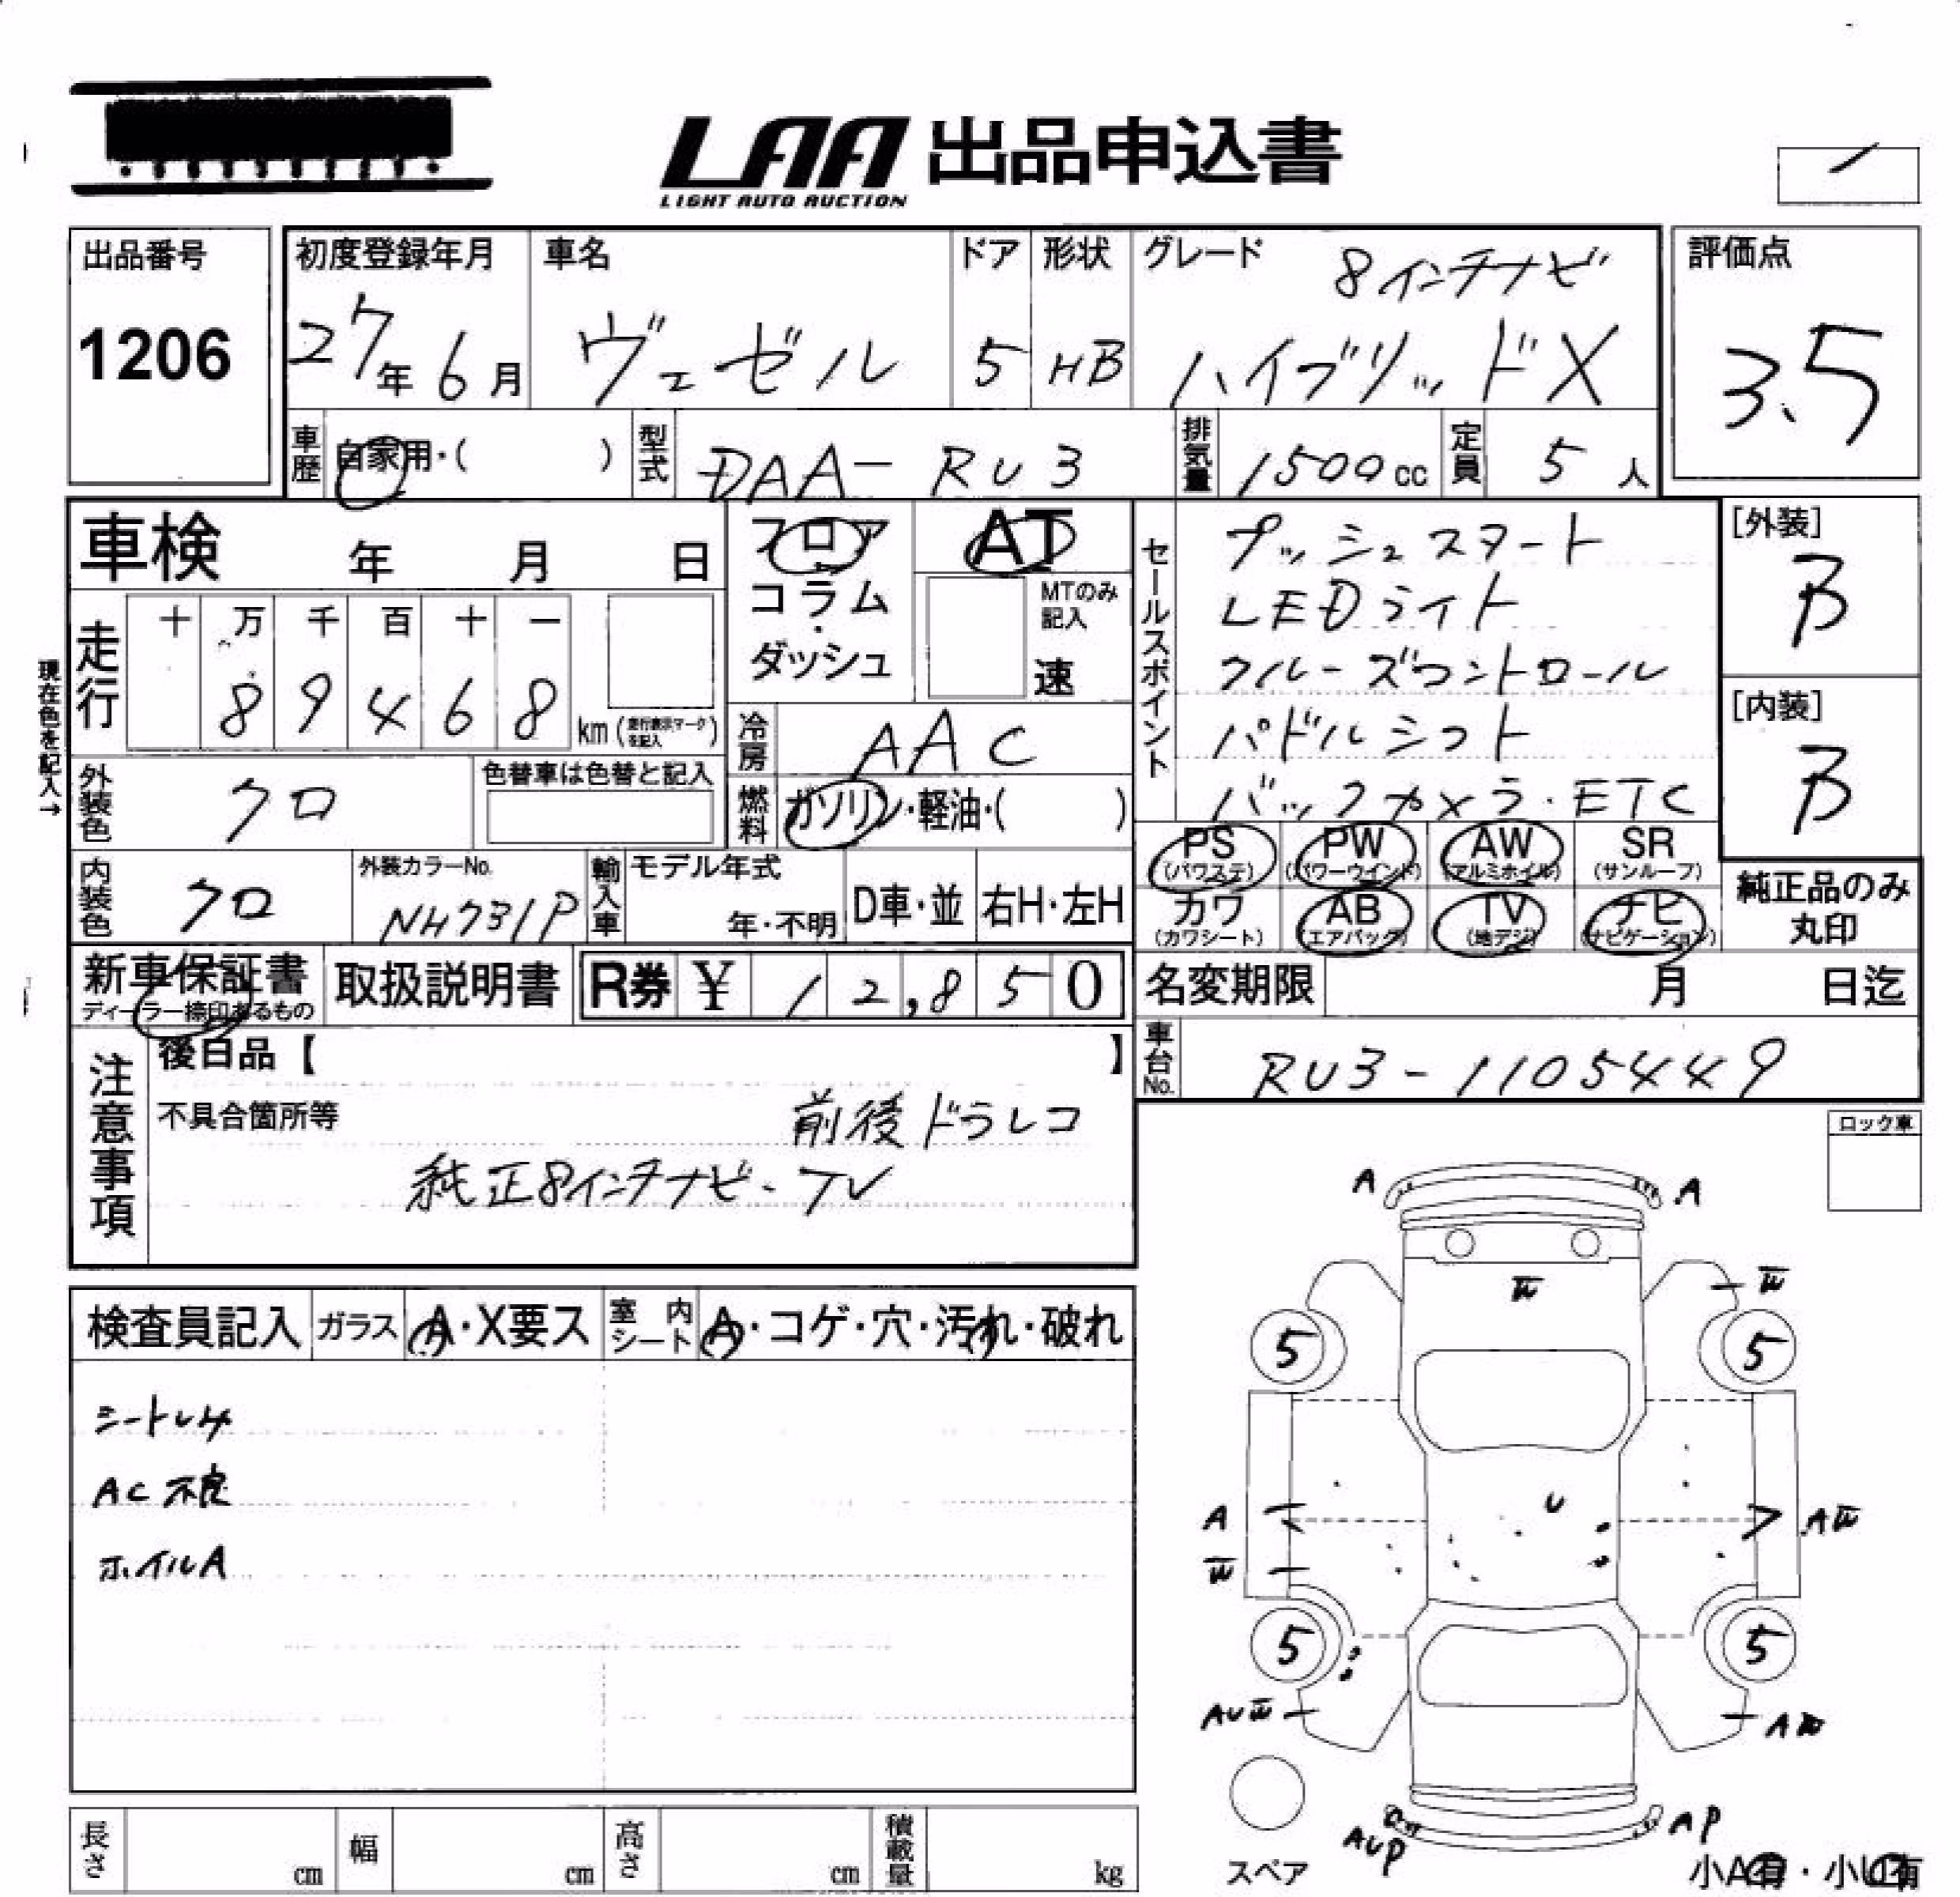 LAA 出品申込書
LIGHT AUTO AUCTION
出品番号
1206
初度登録年月
27年 6月
車名
ヴェゼル
ドア
5
形状
HB
グレード
8インチナビ
ハイブリッドX
評価点
3.5
車歴 自家用・( )
型式 DAA-RU3
排気量 1500cc
定員 5人
車検 年 月 日
フロア
コラム・
ダッシュ
AT
MTのみ記入
速
走行 十 万 千 百 十 一
8 9 4 6 8 km (走行表示マークを記入)
現在色を記入→
冷房 AAC
燃料 ガソリン・軽油・( )
外装色 クロ
色替車は色替と記入
内装色 クロ
外装カラーNo.
NH731P
輸入車 モデル年式
年・不明
D車・並
右H・左H
セールスポイント
プッシュスタート
LEDライト
クルーズコントロール
パドルシフト
バックカメラ・ETC
[外装]
B
[内装]
B
PS (パワステ)
PW (パワーウインド)
AW (アルミホイル)
SR (サンルーフ)
カワ (カワシート)
AB (エアバック)
TV (地デジ)
ナビ (ナビゲーション)
純正品のみ
丸印
新車保証書
ディーラー捺印あるもの
取扱説明書
R券 ¥ 12,850
名変期限 月 日迄
車台No. RU3-1105449
注意事項
後日品【 】
不具合箇所等
前後ドラレコ
純正8インチナビ・TV
ロック車
検査員記入
ガラス A・X要ス
室内シート A・コゲ・穴・汚れ・破れ
AC不良
ホイルA
A
A
W
W
5
5
U
A
AW
W
5
5
AUW
AW
AUP
AP
スペア
小A有・小U有
長さ cm
幅 cm
高さ cm
積載量 kg